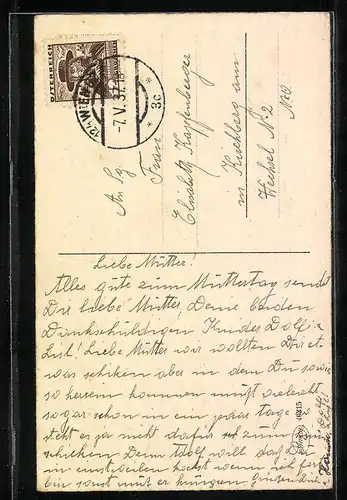 ÖSTERREICH
WIEN
-7.V.37.18
* 3c *
An Sg.
Frau
Elisabeth Kapfenberger
in Kirchberg am
Wechsel No 2
N.Ö
Liebe Mutter!
Alles gute zum Muttertag sendet
Dir liebe Mutter, Deine beiden
Dankschildigen Kinder Dolfi u
List! Liebe Mutter wir wollten Dir et
was schicken aber in dem Du sowie
so herein kommen mußt vieleicht
sogar schon in ein paar tage
steht es ja nicht dafür zum
schicken Denn Adolf will daß Du
in einstweilen
bin sonst muß er